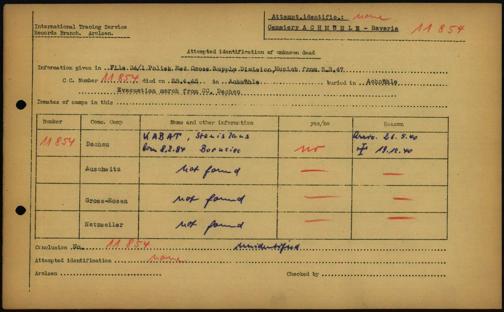 International Tracing Service
Records Branch. Arolsen.
Attempt.identific.: none
Cemetery ACHMÜHLE - Bavaria 11 854
Attempted identification of unknown dead
Information given in File 34/1 Polish Red Cross Supply Division, Munich from
C.C. Number 11854 died on in Achmühle buried in Achmühle
Evacuation march from CC. Dachau
Inmates of camps in this
Number Conc. Camp Name and other information yes/no Reason
11 854 Dachau KABAT, Stanislaus no
born 8.2.84 18.12.40
Auschwitz not found —
Gross-Rosen not found —
Natzweiler not found —
Conclusion No. 11 854 unidentified
Attempted identification none
Arolsen Checked by